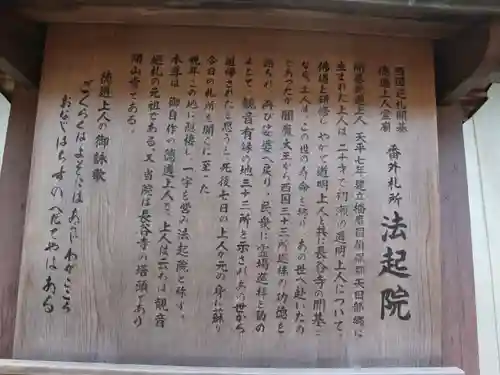 西国巡礼開基
徳道上人霊廟
番外札所
法起院
開基徳道上人 天平七年建立播磨国揖保郡矢田部郷に
生まれた上人は、二十才で初瀬の道明上人について、
仏道を研修し、やがて道明上人と共に長谷寺の開基と
なる。上人は、この世の寿命を終り、あの世へ赴いたの
であったが閻魔大王から西国三十三所巡礼の功徳を
諭され、再び娑婆へ戻り、民衆に霊場巡拝を勧め
よとて、観音有縁の地三十三所を示されあの世から
追帰されたと思うと死後七日の上人が元の身に蘇り
今日の札所を開くに至った
晩年この地に隠棲し一宇を営み法起院と称す。
本尊は、御自作の徳道上人で、上人は云わば観音
巡礼の元祖である。又当院は長谷寺の塔頭であり
開山堂である。
徳道上人の御詠歌
ごくらくはよそにはあらじわがこころ
おなじはちすのへだてやはある